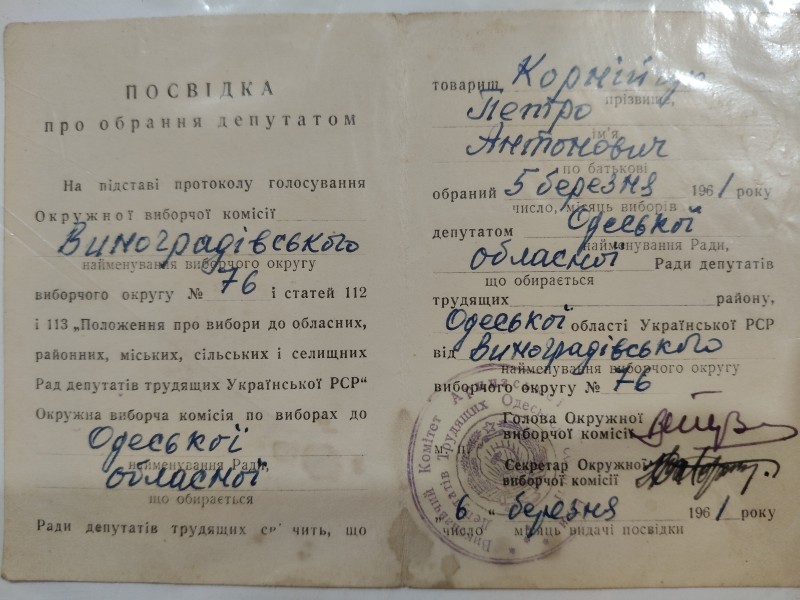 ПОСВІДКА
про обрання депутатом
На відставі протоколу голосування
Окружної виборчої комісії
Виноградівського
найменування виборчого округу
виборчого округу № 76 і статей 112
і 113 „Положення про вибори до обласних,
районних, міських, сільських і селищних
Рад депутатів трудящих Української РСР“
Окружна виборча комісія по виборах до
Одеської
найменування Ради,
обласної
що обирається
Ради депутатів трудящих свідчить, що
товариш Корнійчук
прізвище,
Петро
ім'я
Антонович
по батькові
обраний 5 березня 1961 року
число, місяць виборів
депутатом Одеської
найменування Ради,
обласної Ради депутатів
що обирається
трудящих району,
Одеської області Української РСР
від Виноградівського
найменування виборчого округу
виборчого округу № 76
Голова Окружної
виборчої комісії
М. П.
Секретар Окружної
виборчої комісії
„6“ березня 1961 року
число місяць видачі посвідки
Виконавчий Комітет
Депутатів Трудящих Одеської